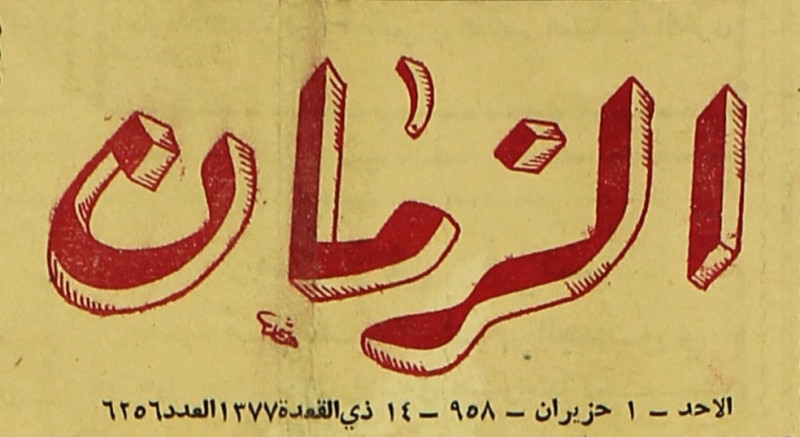 الزمان
الاحد — ١ حزيران — ٩٥٨ — ١٤ ذي القعدة ١٣٧٧ العدد ٦٢٥٦